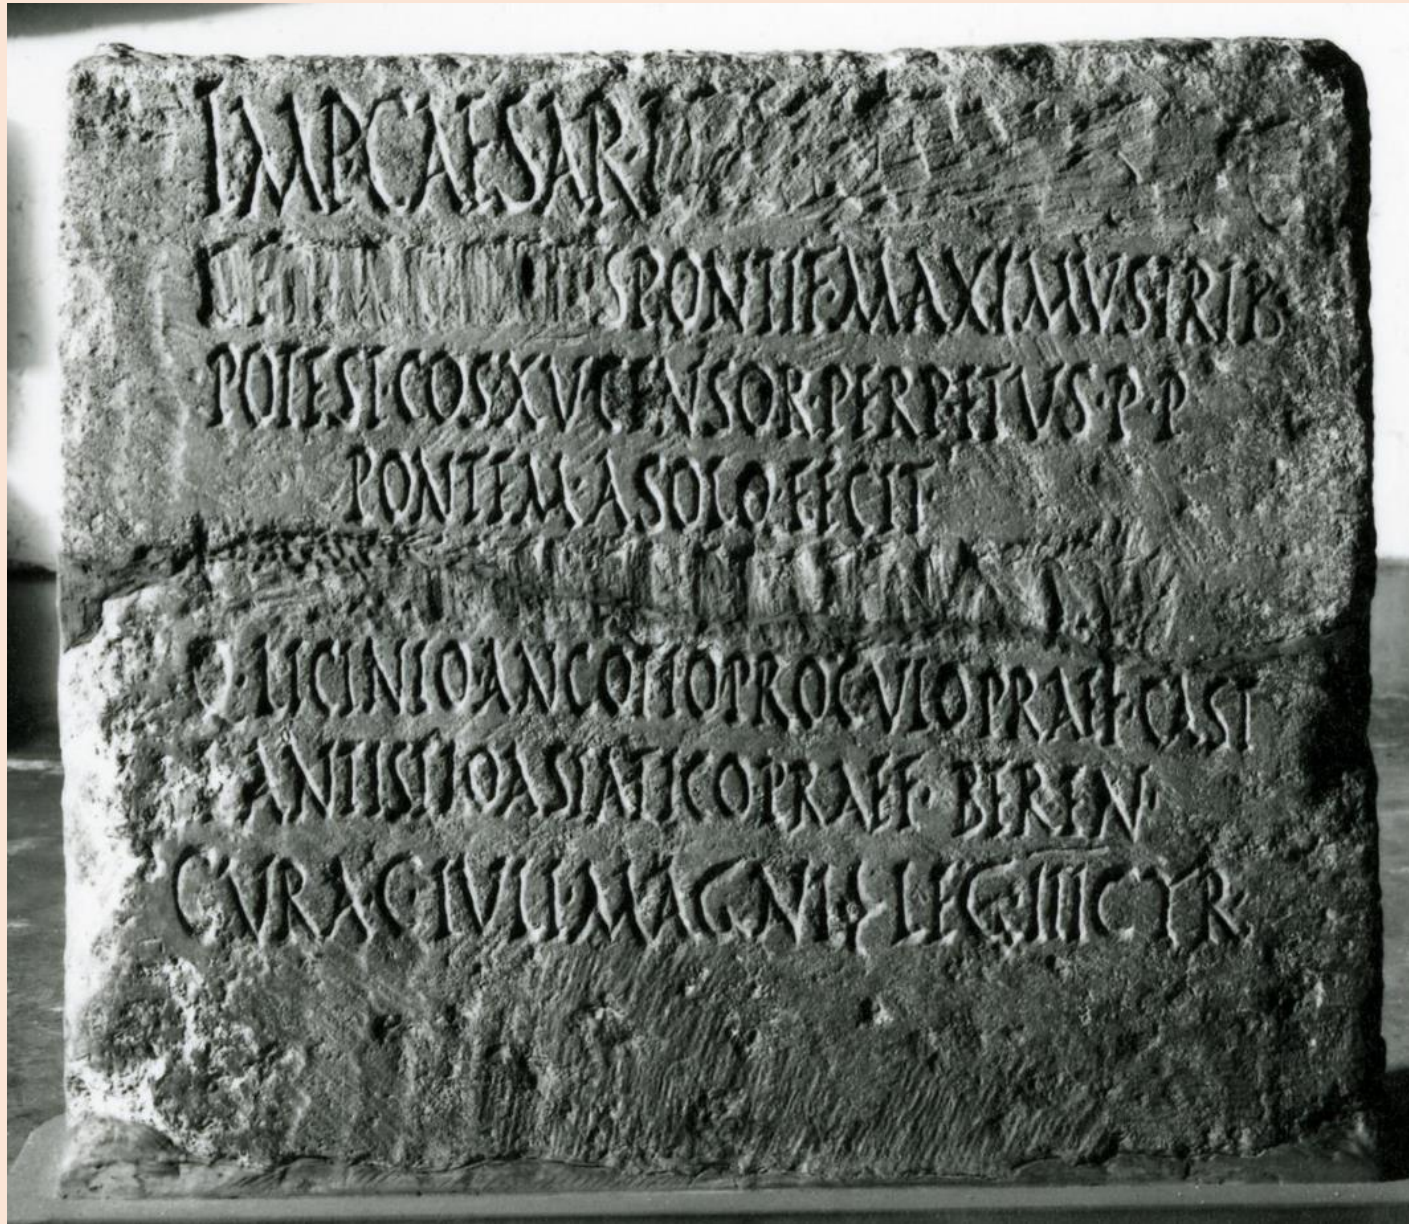 IMP CAESARI
S PONTIF·MAXIMVS·TRIB·
POTEST·COS XV CENSOR·PERPETVVS·P·P
PONTEM·A SOLO·FECIT
Q·LICINIO ANCOTIO PROCVLO PRAEF·CAST
ANTISTIO ASIATICO PRAEF·BEREN·
CVRA C·IVLI MAGNI LEG·III CYR·